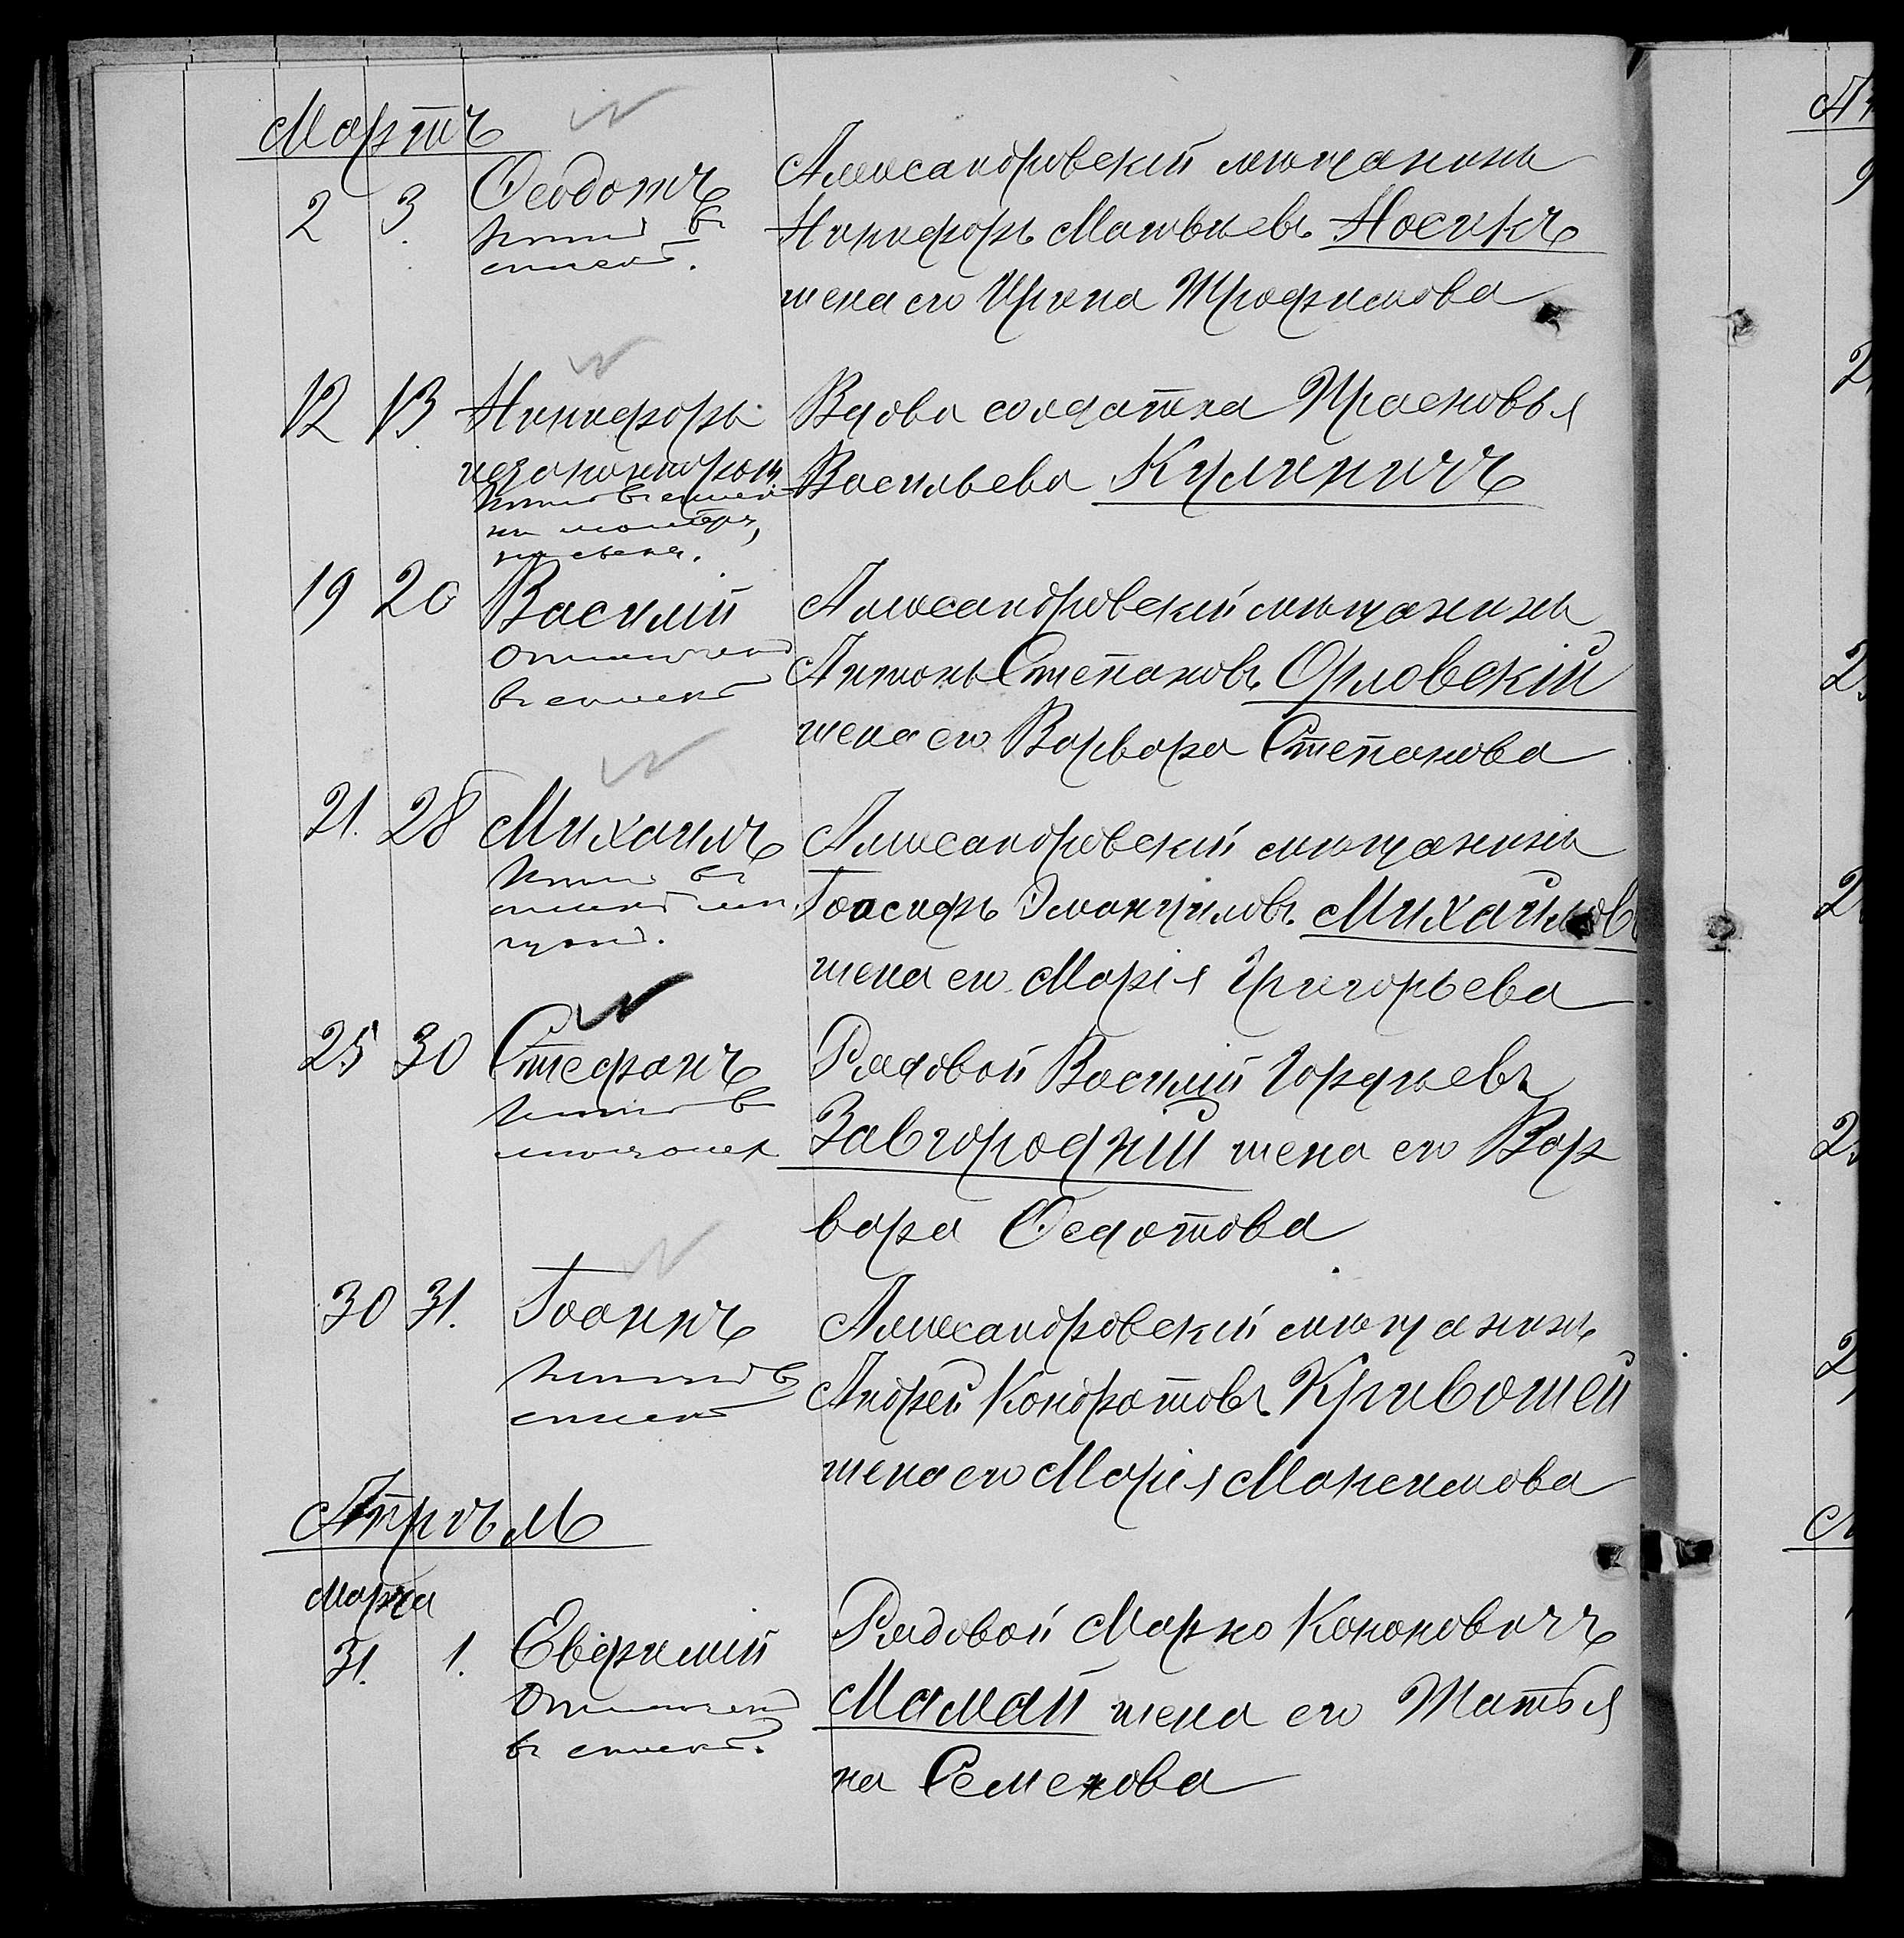 Мартъ
2 3. Ѳеодотъ
Александровскій мѣщанинъ
Никифоръ Матвѣевъ Носикъ
жена его Ирина Трофимова
12 13. Никифоръ
незаконнорожд.
Вдова солдатка Прасковья
Васильева Куликичъ
19 20 Василій
Отмечено
въ списке
Александровскій мѣщанинъ
Антонъ Степановъ Орловскій
жена его Варвара Степанова
21. 28 Михаилъ
Александровскій мѣщанинъ
Іоасифъ Эмануиловъ Михайлов
жена его Марія Григорьева
25 30 Стефанъ
Рядовой Василій Гордѣевъ
Завгородній жена его Вар
вара Ѳедотова
30 31. Іоаннъ
Александровскій мѣщанинъ
Андрей Кондратовъ Кривошей
жена его Марія Максимова
Апрѣль
Марта
31. 1. Евфимій
Отмечено
въ списке.
Рядовой Марко Кононовичъ
Мамай жена его Татья
на Семенова